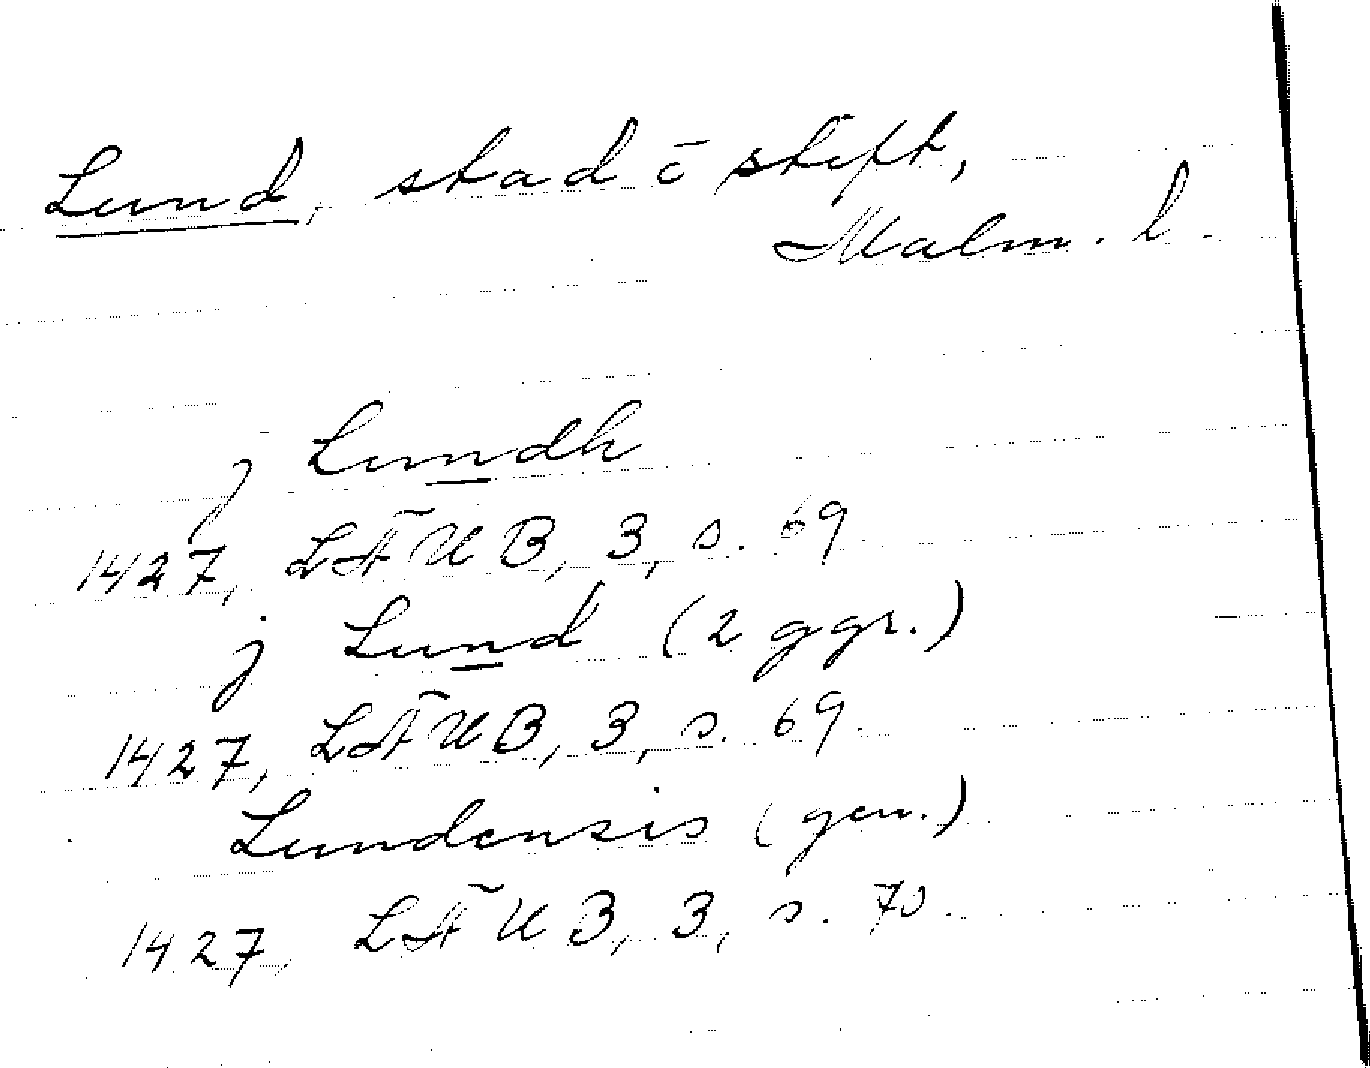 Lund, stad o stift,
Malm. l.
j Lundh
1427, LÄUB, 3, s. 69
j Lund (2 ggr.)
1427, LÄUB, 3, s. 69.
Lundensis (gen.)
1427, LÄUB, 3, s. 70.